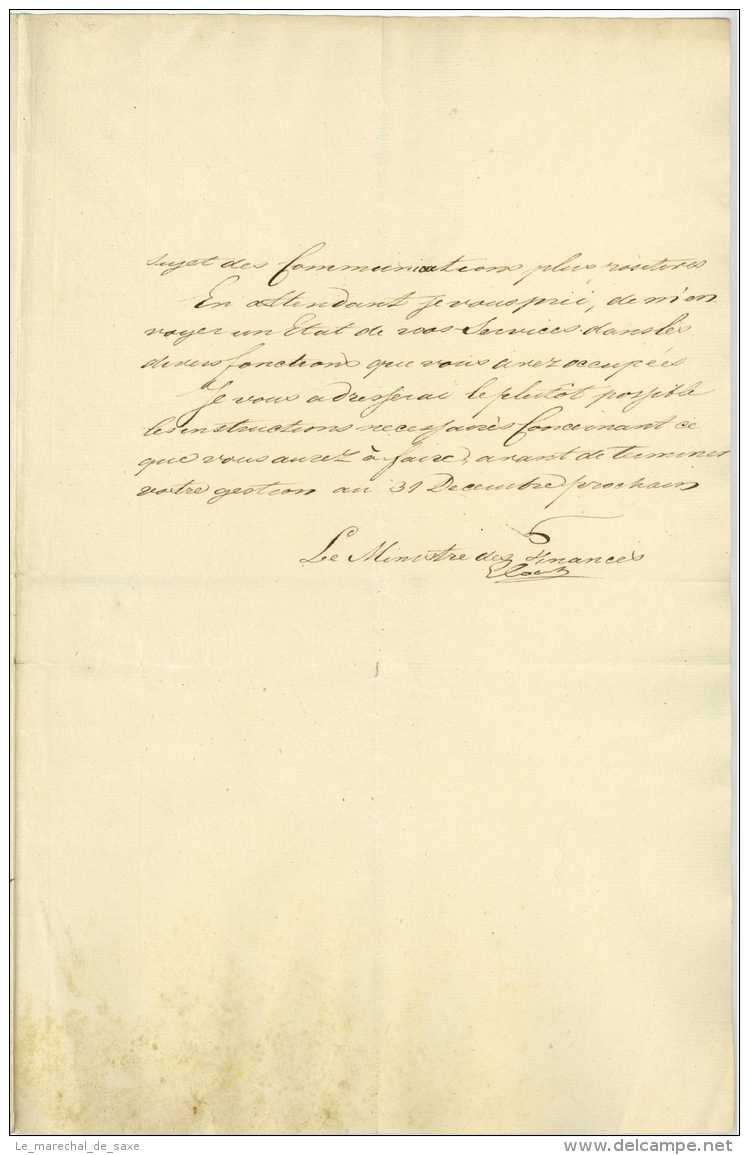 sujet des Communications plus
En attendant je vous prie, de m'en
voyer un Etat de vos Services dans les
divers fonctions que vous avez occupées
Je vous adresserai le plutôt possible
les instructions necessaires Concernant ce
que vous aurez à faire, avant de terminer
votre gestion au 31 Decembre prochain
Le Ministre des Finances
Le_marechal_de_saxe
delcampe.net